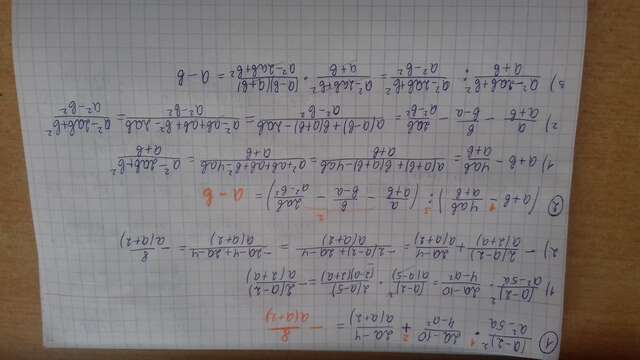 ① (a-2)²/(a²-5a) · (2a-10)/(4-a²) + (2a-4)/(a(a+2)) = - 8/(a(a+2))
1) (a-2)²/(a²-5a) · (2a-10)/(4-a²) = (a-2)²/(a(a-5)) · 2(a-5)/((2-a)(2+a)) = - 2(a-2)/(a(2+a))
2) - 2(a-2)/(a(2+a)) + (2a-4)/(a(a+2)) = (-2(a-2)+2a-4)/(a(a+2)) = (-2a-4+2a-4)/(a(a+2)) = - 8/(a(a+2))
② (a+b - 4ab/(a+b)) : (a/(a+b) - b/(b-a) - 2ab/(a²-b²)) = a-b
1) a+b - 4ab/(a+b) = (a(a+b)+b(a+b)-4ab)/(a+b) = (a²+ab+ab+b²-4ab)/(a+b) = (a²-2ab+b²)/(a+b)
2) a/(a+b) - b/(b-a) - 2ab/(a²-b²) = (a(a-b)+b(a+b)-2ab)/(a²-b²) = (a²-ab+ab+b²-2ab)/(a²-b²) = (a²-2ab+b²)/(a²-b²)
3) (a²-2ab+b²)/(a+b) : (a²-2ab+b²)/(a²-b²) = (a²-2ab+b²)/(a+b) · (a-b)(a+b)/(a²-2ab+b²) = a-b